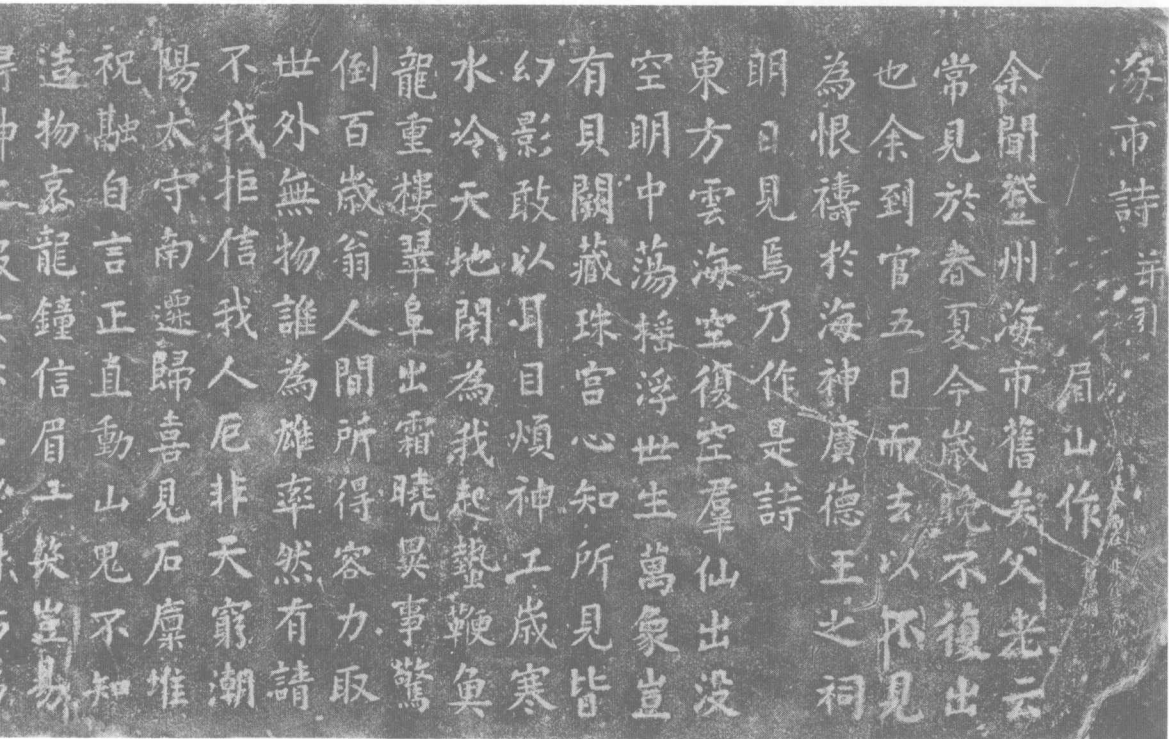 海市詩并引
眉山作
余聞登州海市舊矣父老云
常見於春夏今歲晚不復出
也余到官五日而去以不見
為恨禱於海神廣德王之祠
明日見焉乃作是詩
東方雲海空復空羣仙出没
空明中蕩搖浮世生萬象豈
有貝闕藏珠宮心知所見皆
幻影敢以耳目煩神工歲寒
水冷天地閉為我起蟄鞭魚
龍重樓翠阜出霜曉異事驚
倒百歲翁人間所得容力取
世外無物誰為雄率然有請
不我拒信我人厄非天窮潮
陽太守南遷歸喜見石廩堆
祝融自言正直動山鬼不知
造物哀龍鐘信眉一笑豈易